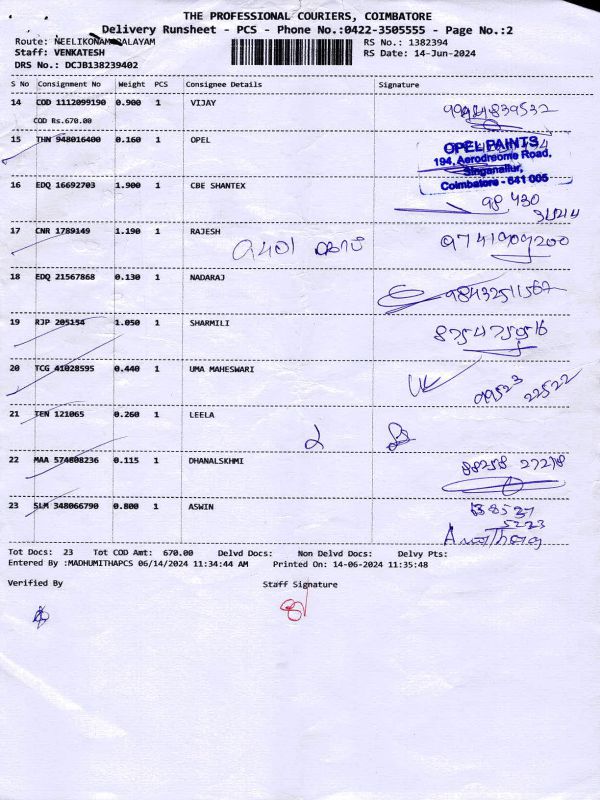 THE PROFESSIONAL COURIERS, COIMBATORE
Delivery Runsheet - PCS - Phone No.:0422-3505555 - Page No.:2
Route: NEELIKONAMPALAYAM
RS No.: 1382394
Staff: VENKATESH
RS Date: 14-Jun-2024
DRS No.: DCJB138239402
S No Consignment No Weight PCS Consignee Details Signature
14 COD 1112099190 0.900 1 VIJAY
COD Rs.670.00
15 THN 948016400 0.160 1 OPEL
OPEL PAINTS
194, Aerodreome Road,
Singanallur,
Coimbatore - 641 005
16 EDQ 16692703 1.900 1 CBE SHANTEX
98 430
31214
17 CNR 1789149 1.190 1 RAJESH
9741909200
18 EDQ 21567868 0.130 1 NADARAJ
19 RJP 205154 1.050 1 SHARMILI
8754750516
20 TCG 41028595 0.440 1 UMA MAHESWARI
99523 22522
21 TEN 121065 0.260 1 LEELA
22 MAA 574808236 0.115 1 DHANALSKHMI
88258 27278
23 SLM 348066790 0.800 1 ASWIN
Tot Docs: 23 Tot COD Amt: 670.00 Delvd Docs: Non Delvd Docs: Delvy Pts:
Entered By :MADHUMITHAPCS 06/14/2024 11:34:44 AM Printed On: 14-06-2024 11:35:48
Verified By Staff Signature